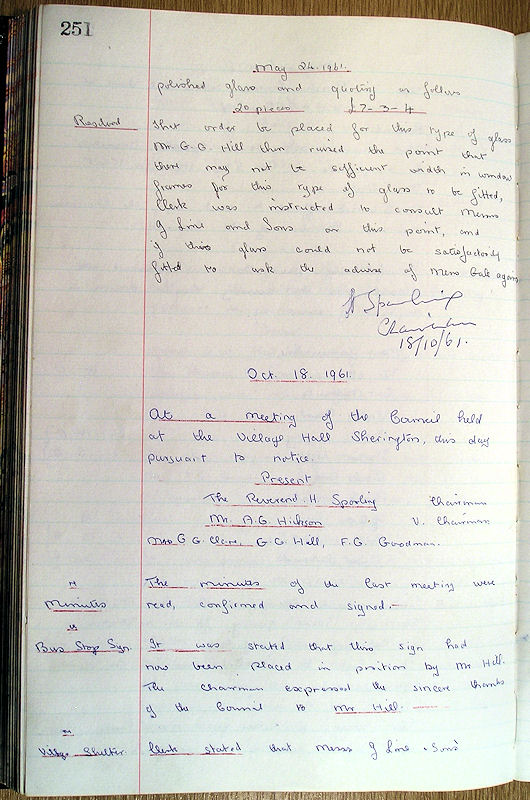 251
May 24. 1961.
polished glass and quoting as follows
20 pieces £7-3-4
Resolved that order be placed for this type of glass
Mr. G.G. Hill then raised the point that
there may not be sufficient width in window
frames for this type of glass to be fitted,
Clerk was instructed to consult Messrs
J Line and Sons on this point, and
if this glass could not be satisfactorily
fitted to ask the advise of Messrs Gale again.
H Sparling
Chairman
18/10/61.
Oct. 18. 1961.
At a meeting of the Council held
at the Village Hall Sherington, this day
pursuant to notice.
Present
The Reverend H. Sparling Chairman
Mr. A.G. Hickson V. Chairman
G G. Clare, G.G. Hill, F.G. Goodman.
Minutes The minutes of the last meeting were
read, confirmed and signed.
Bus Stop Sign. It was stated that this sign had
now been placed in position by Mr Hill.
The chairman expressed the sincere thanks
of the Council to Mr Hill.
Village Shelter Clerk stated that Messrs J Line & Sons